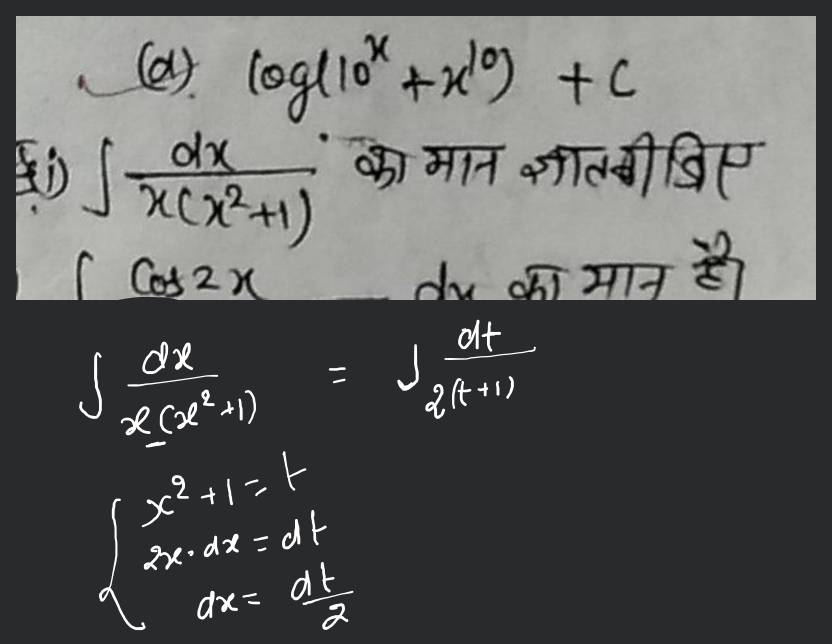 (d) log(10^x + x^10) + C
(i) ∫ dx / x(x²+1) का मान ज्ञात कीजिए
∫ Cos 2x dx का मान है।
∫ dx / x(x²+1) = ∫ dt / 2(t+1)
x² + 1 = t
2x · dx = dt
dx = dt / 2